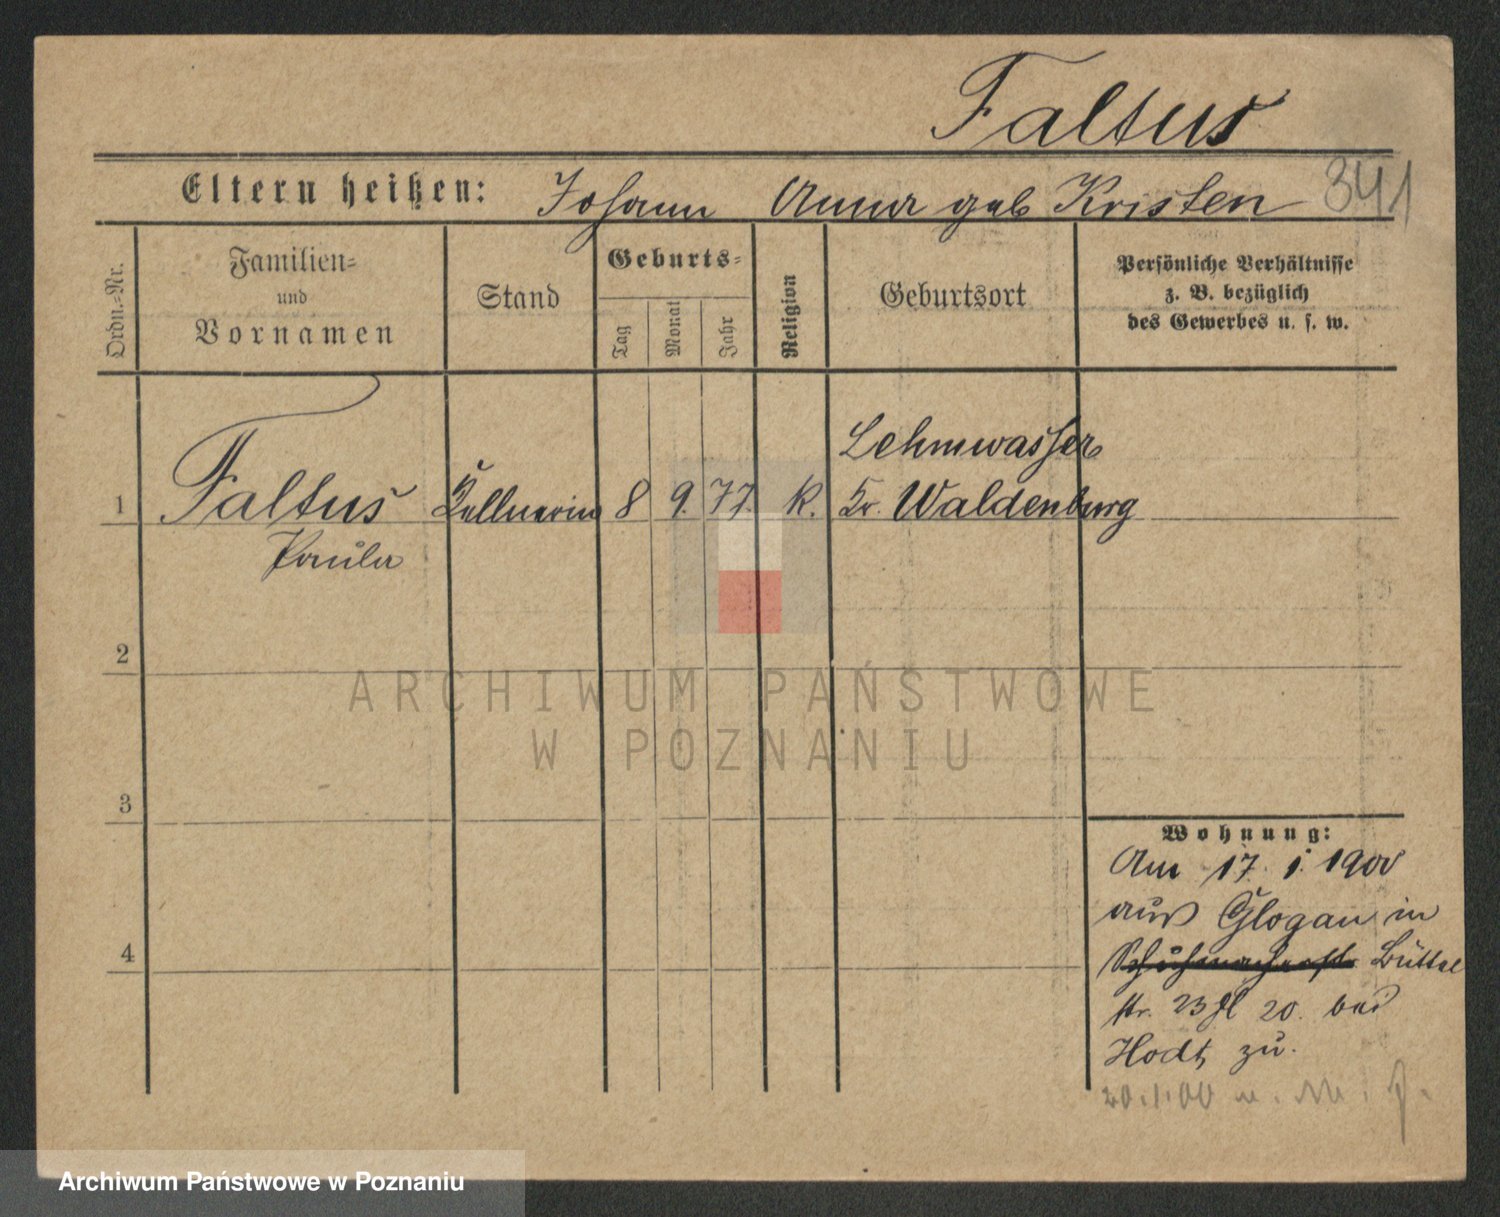 Faltus
Eltern heißen: Johann Anna geb Kristen 341
Ordn.-Nr.
Familien-
und
Vornamen
Stand
Geburts-
Tag
Monat
Jahr
Religion
Geburtsort
Persönliche Verhältnisse
z. B. bezüglich
des Gewerbes u. s. w.
Lehmwasser
1 Faltus Kellnerin 8 9. 77. K. Kr. Waldenburg
Paula
2
ARCHIWUM PAŃSTWOWE
W POZNANIU
3
Wohnung:
Am 17. 1. 1900
aus Glogau in
Büttel
str. 23 20. bei
Hodt, zu.
4
20.1.00
Archiwum Państwowe w Poznaniu